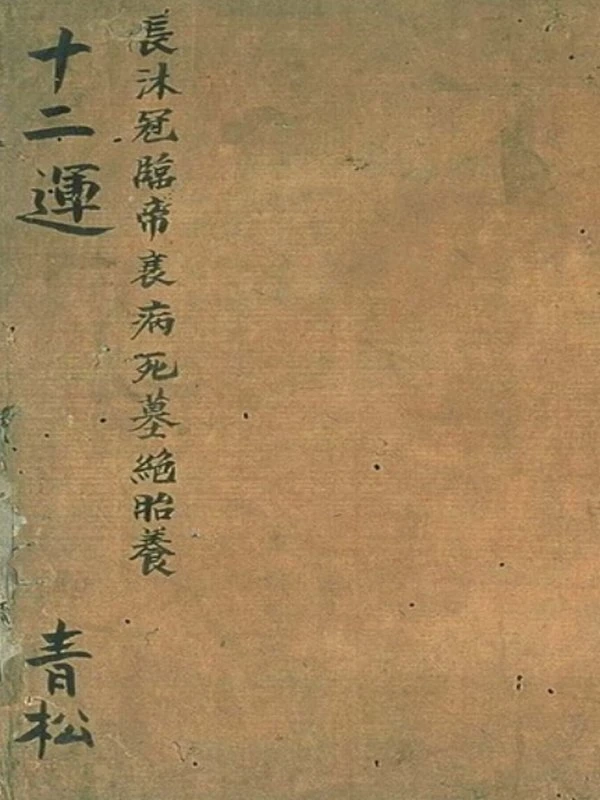 長沐冠臨帝衰病死墓絶胎養
十二運
青松